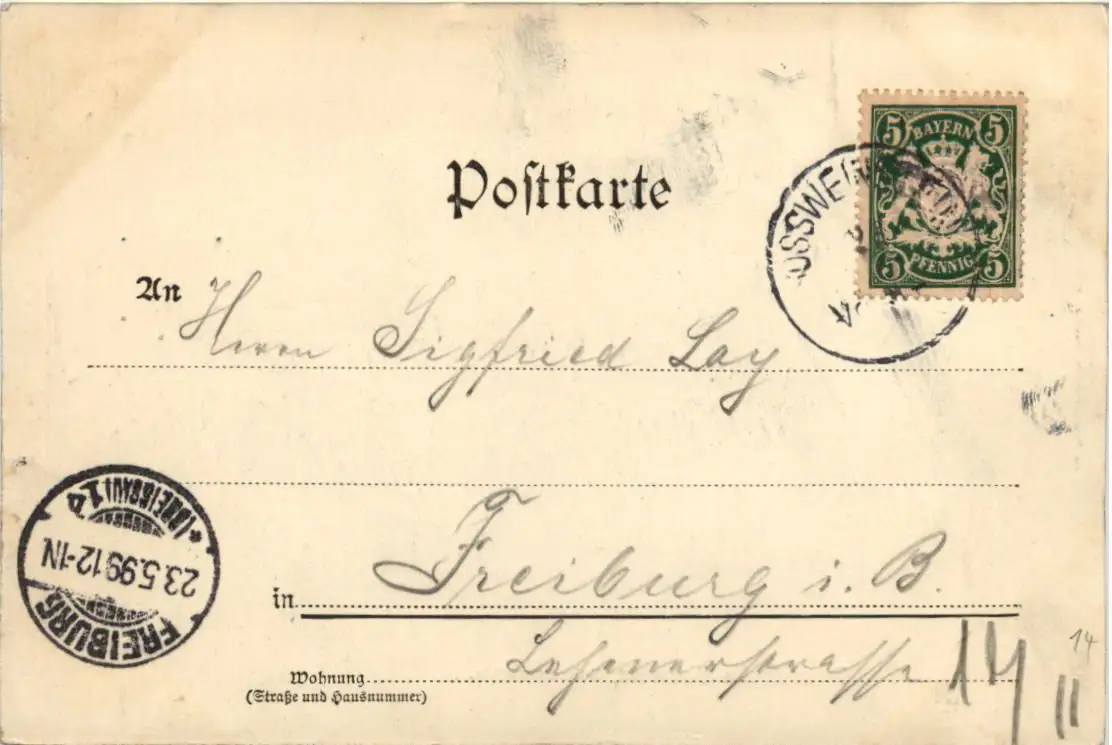 Postkarte
5 BAYERN 5
5 PFENNIG 5
An Herrn Sigfried Lay
FREIBURG
23.5.99 12-1N
*(BREISGAU) 1
in Freiburg i. B.
Wohnung
(Straße und Hausnummer)
14
14
11